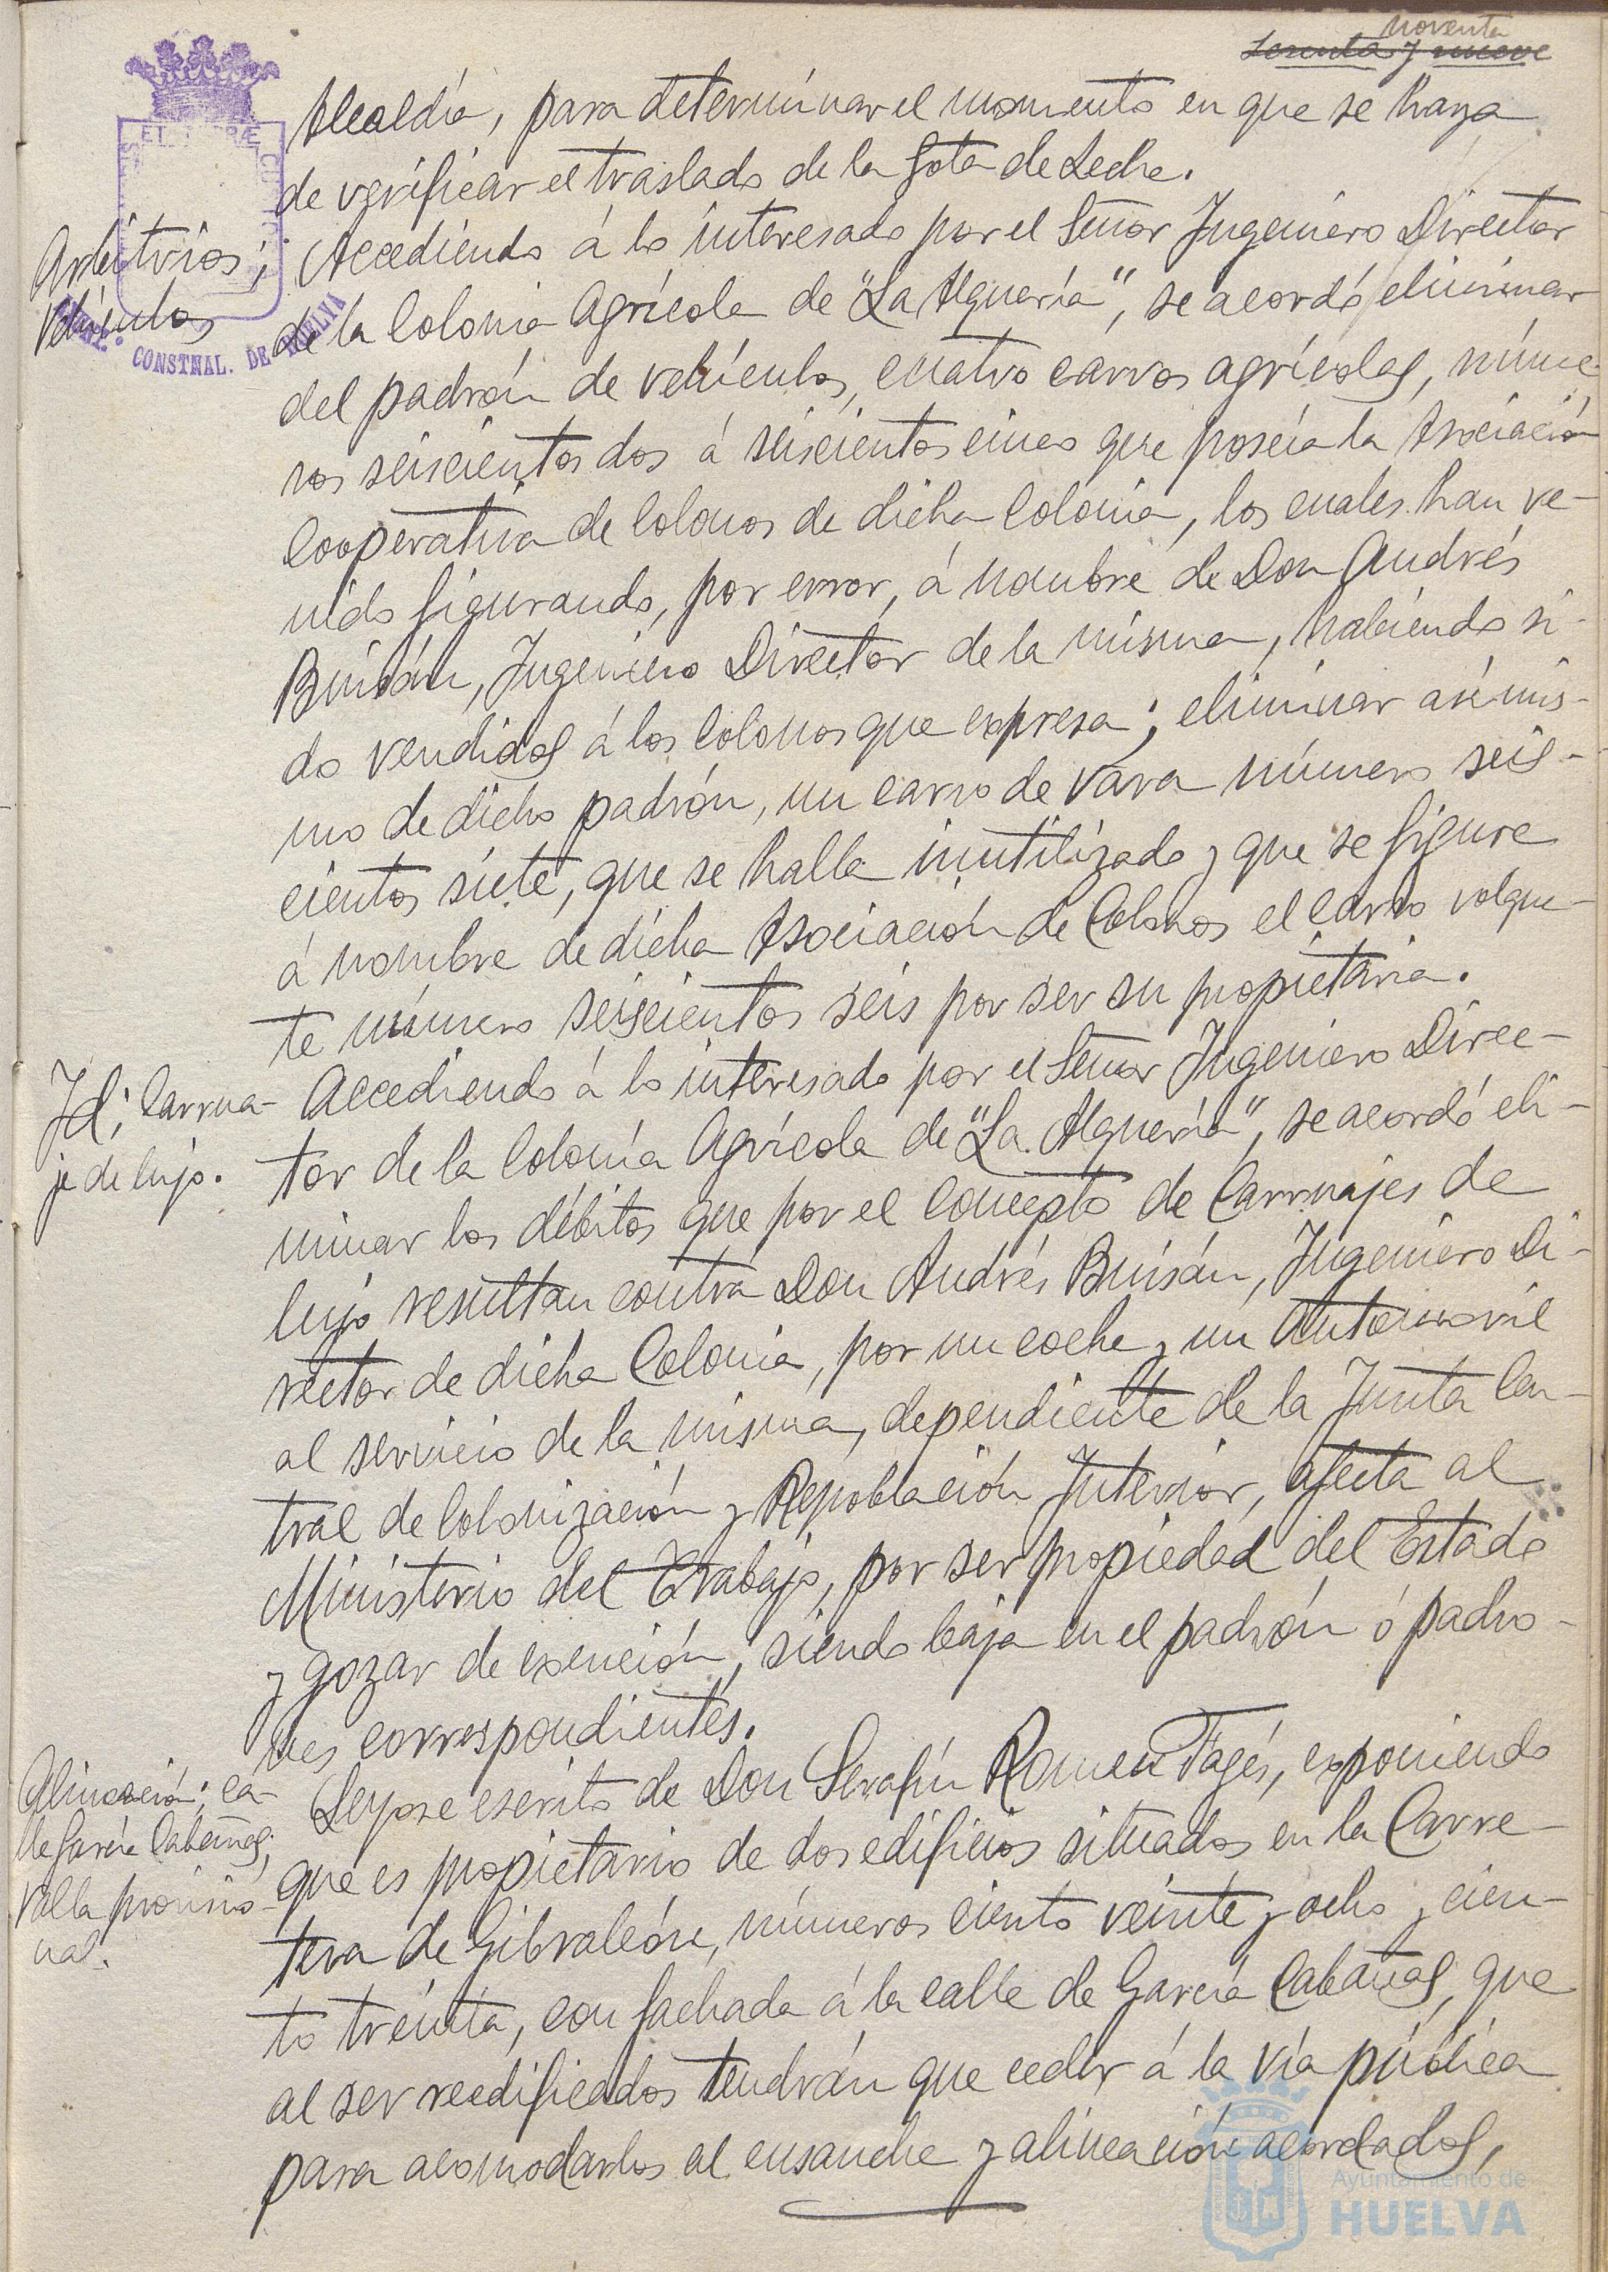 noventa
Sesenta y nueve
Alcaldía, para determinar el momento en que se haya
de verificar el traslado de la Gota de Leche.
Arbitrios;
Vehículos
Accediendo á lo interesado por el Señor Ingeniero Director
de la Colonia Agrícola de "La Alquería", se acordó eliminar
del padrón de vehículos, cuatro carros agrícolas, núme-
ros seiscientos dos á seiscientos cinco que poseía la Asociación
Cooperativa de Colonos de dicha Colonia, los cuales han ve-
nido figurando, por error, á nombre de Don Andrés
Buisán, Ingeniero Director de la misma, habiendo si-
do vendidos á los Colonos que expresa; eliminar asímis-
mo de dicho padrón, un carro de vara número seis-
cientos siete, que se halla inutilizado y que se figure
á nombre de dicha Asociación de Colonos el carro volque-
te número seiscientos seis por ser su propietaria.
Id; Carrua-
je de lujo.
Accediendo á lo interesado por el Señor Ingeniero Direc-
tor de la Colonia Agrícola de "La Alquería", se acordó eli-
minar los débitos que por el concepto de Carruajes de
lujo resultan contra Don Andrés Buisán, Ingeniero Di-
rector de dicha Colonia, por un coche y un Automovil
al servicio de la misma, dependiente de la Junta Cen-
tral de Colonización y Repoblación Interior, afecta al
Ministerio del Trabajo, por ser propiedad del Estado
y gozar de exención, siendo baja en el padrón ó padro-
nes correspondientes.
Alineación; ca-
lle García Cabañas;
Valla provisio-
nal.
Leyose escrito de Don Serafín Romeu Fagés, exponiendo
que es propietario de dos edificios situados en la Carre-
tera de Gibraleón, números ciento veinte y ocho y cien-
to treinta, con fachada á la calle de García Cabañas, que
al ser reedificados tendrán que ceder á la vía pública
para acomodarlos al ensanche y alineación acordados,
CONSTNAL. DE HUELVA
Ayuntamiento de
HUELVA